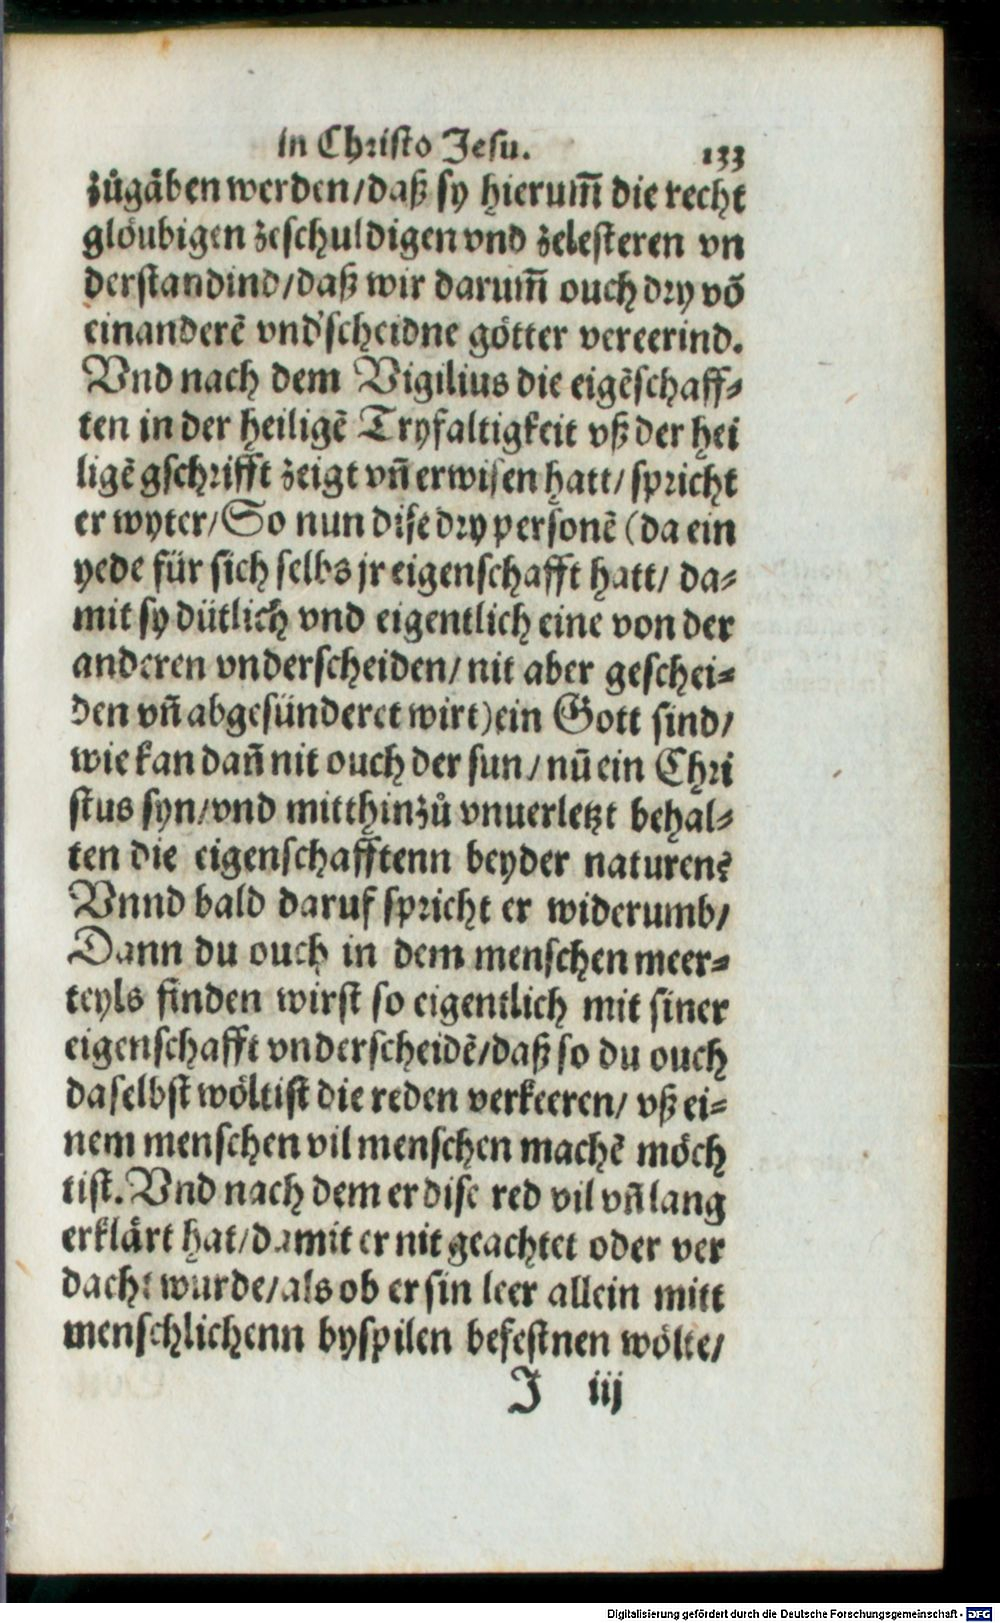 in Christo Jesu. 133
zůgäben werden/daß sy hierum̃ die recht
glöubigen zeschuldigen vnd zelesteren vn
derstandind/daß wir darum̃ ouch dry võ
einanderẽ vnd'scheidne götter vereerind.
Vnd nach dem Vigilius die eigẽschaff⸗
ten in der heiligẽ Tryfaltigkeit vß der hei
ligẽ gschrifft zeigt vñ erwisen hatt/ spricht
er wyter/So nun dise dry personẽ (da ein
yede für sich selbs jr eigenschafft hatt/ da⸗
mit sy dütlich vnd eigentlich eine von der
anderen vnderscheiden/ nit aber geschei⸗
den vñ abgesünderet wirt) ein Gott sind/
wie kan dañ nit ouch der sun/ nũ ein Chri
stus syn/vnd mitthinzů vnuerletzt behal⸗
ten die eigenschafftenn beyder naturen?
Vnnd bald daruf spricht er widerumb/
Dann du ouch in dem menschen meer⸗
teyls finden wirst so eigentlich mit siner
eigenschafft vnderscheidẽ/daß so du ouch
daselbst wöltist die reden verkeeren/ vß ei⸗
nem menschen vil menschen machẽ möch
tist. Vnd nach dem er dise red vil vñ lang
erklärt hat/damit er nit geachtet oder ver
dacht wurde/als ob er sin leer allein mitt
menschlichenn byspilen befestnen wölte/
J iij
Digitalisierung gefördert durch die Deutsche Forschungsgemeinschaft - DFG